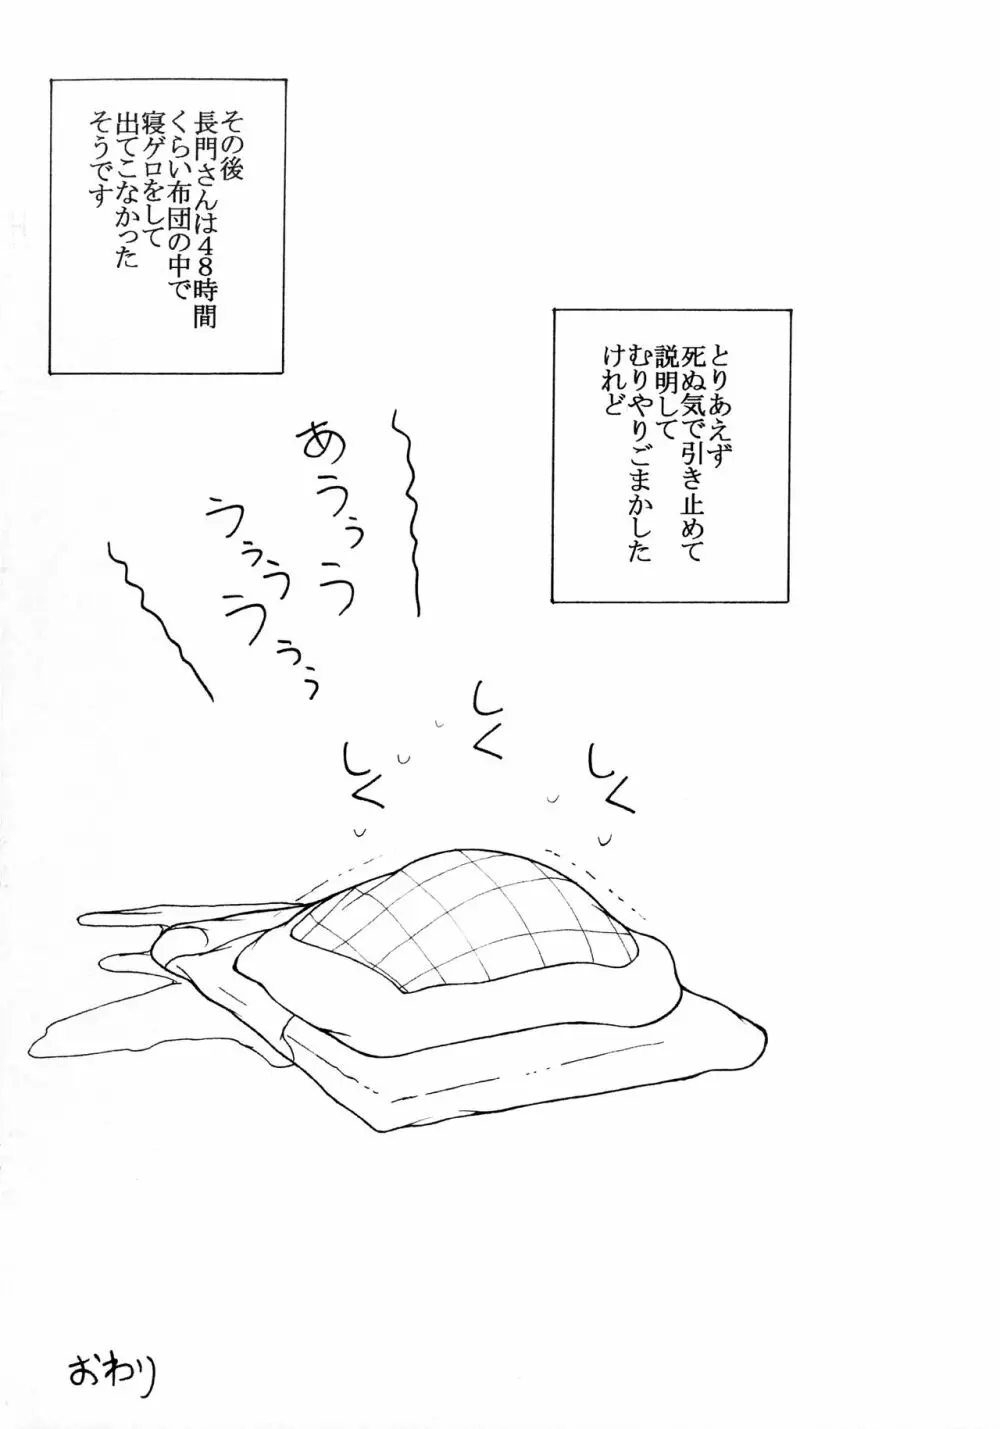 とりあえず
死ぬ気で引き止めて
説明して
むりやりごまかした
けれど
その後
長門さんは４８時間
くらい布団の中で
寝ゲロをして
出てこなかった
そうです
あううぅう
うぅうううぅぅ
しく
しく
しく
おわり